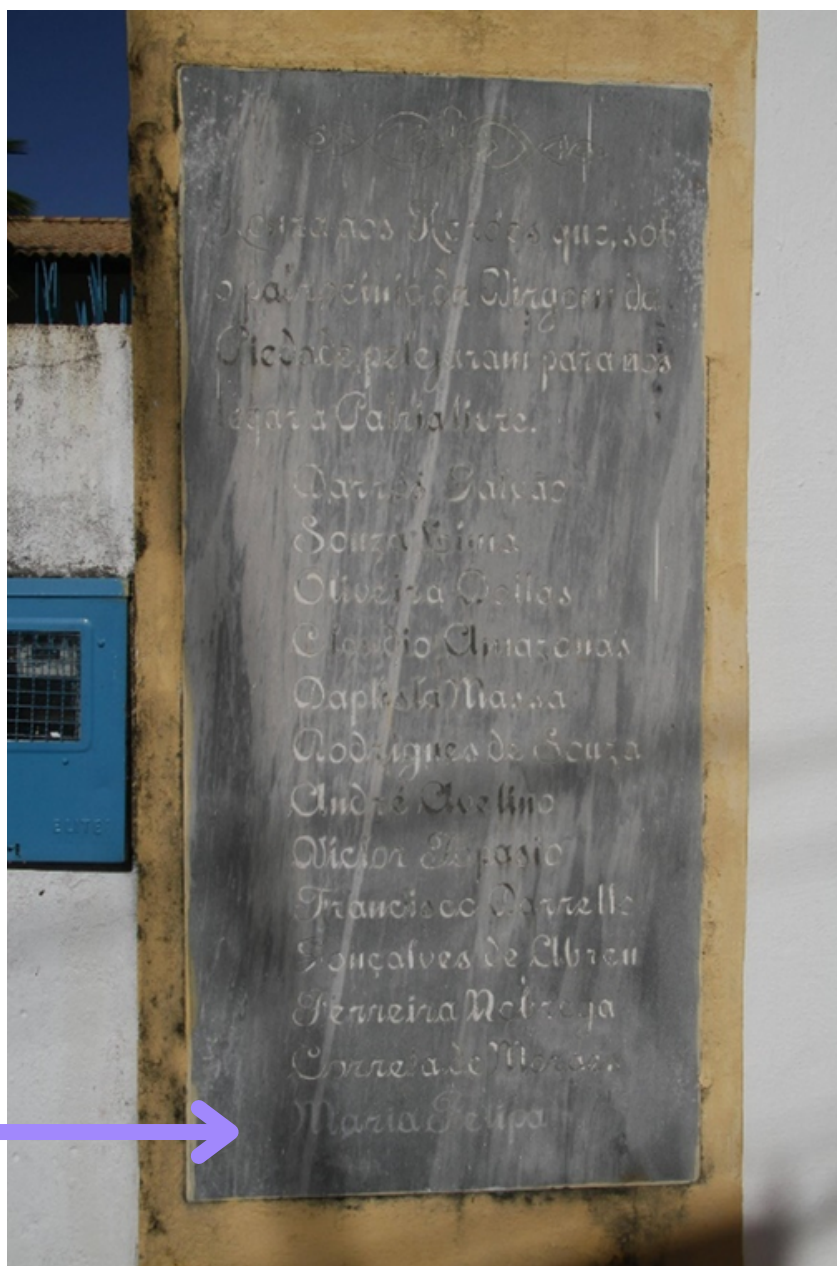 Honra aos Heróes que, sob
o patrocinio da Virgem da
Piedade, pelejaram para nos
legar a Patria livre.
Barros Galvão
Souza Lima
Oliveira Bottas
Claudio Amazonas
Baptista Massa
Rodrigues de Souza
André Avelino
Victor
Francisco
Gonçalves de Abreu
Ferreira Nobrega
Correia de Moraes
Maria Felipa
ELITE